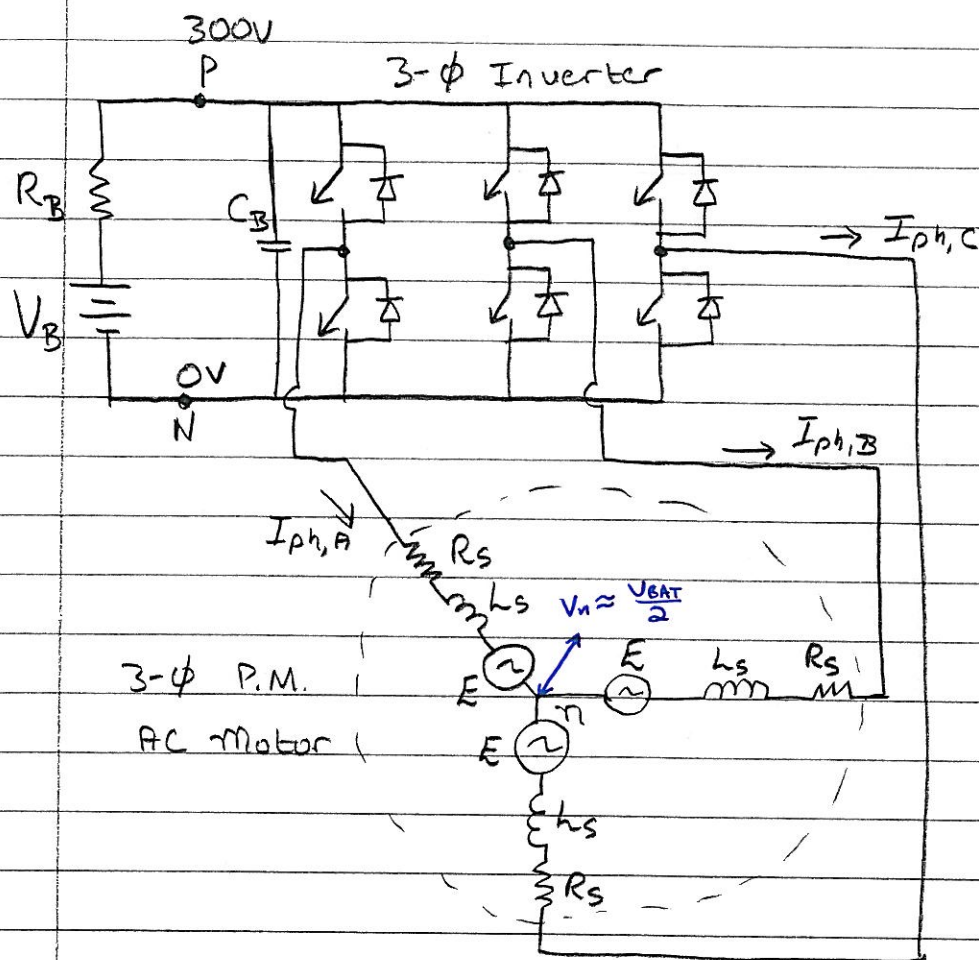 300V
P
3-ϕ Inverter
R_B
C_B
I_ph,C
V_B
0V
N
I_ph,B
I_ph,A
R_s
L_s
V_n ≈ V_BAT/2
E
L_s
R_s
3-ϕ P.M.
E
n
AC Motor
E
L_s
R_s